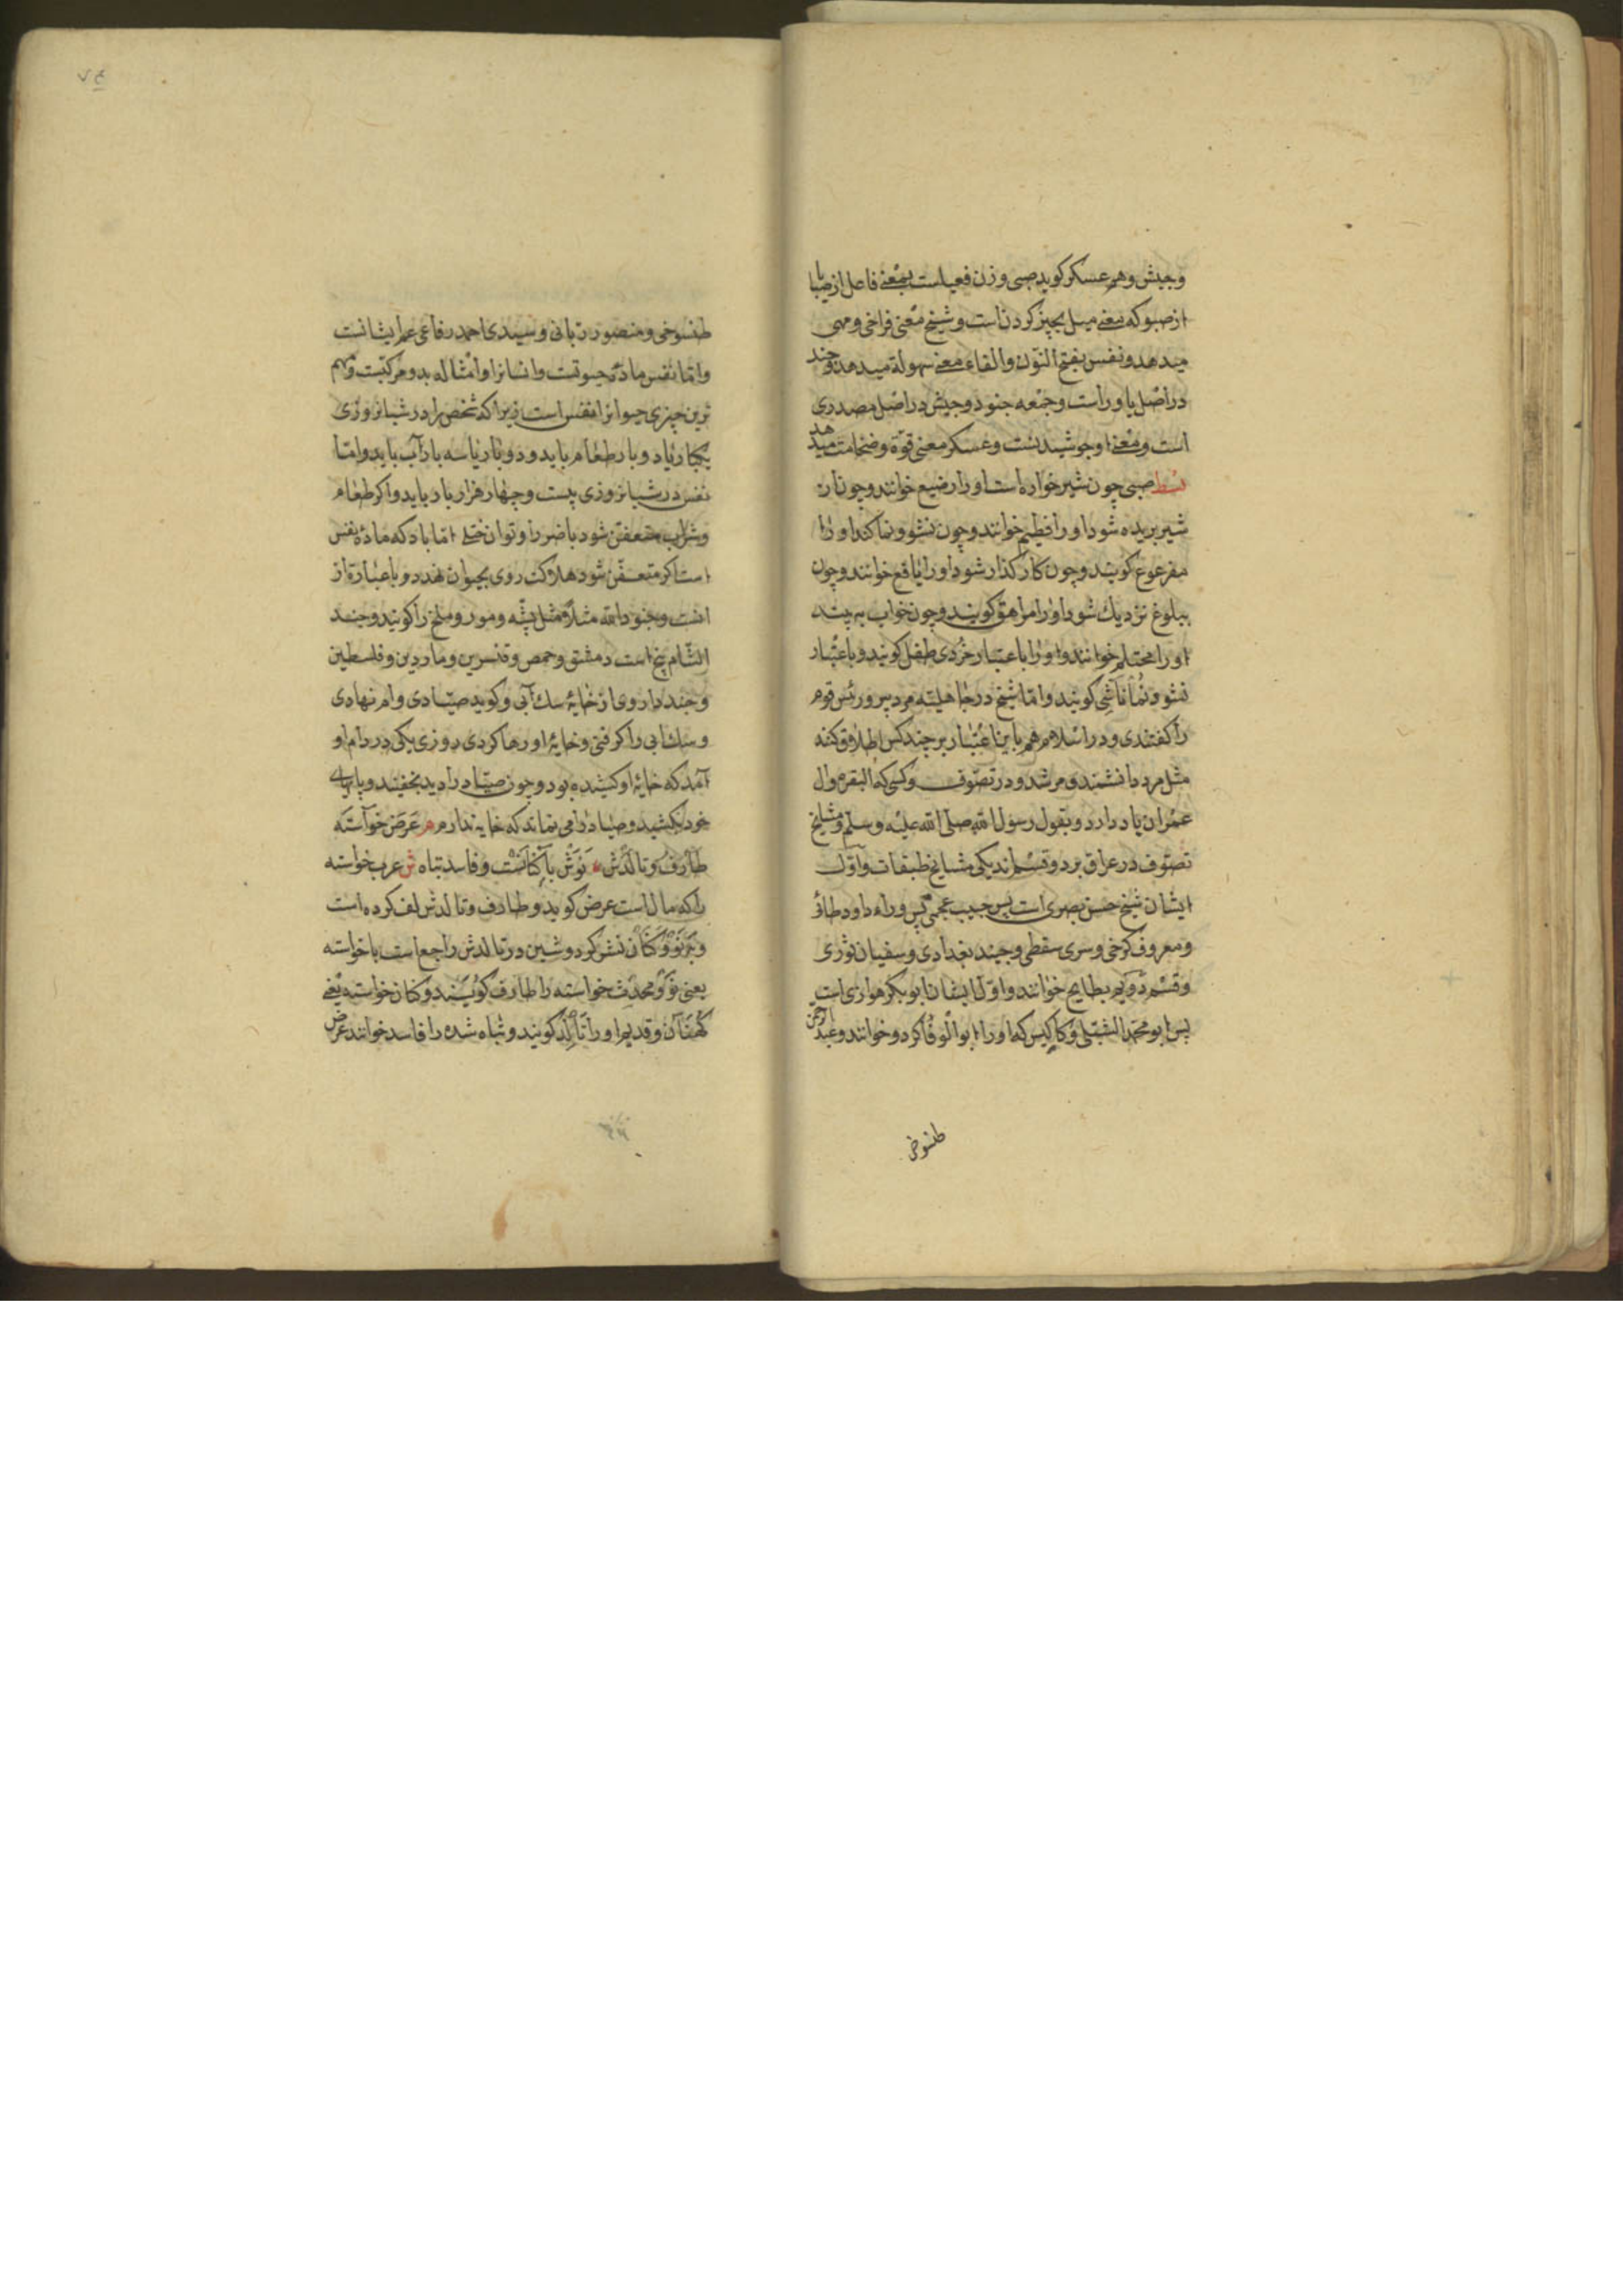 وجیش وهم عسکر کوید صبی وزن فعیلست بمعنی فاعل از صبا یا
از صبو که معنی میل بچیز کردن است وشیخ معنی فراخی ومهی
میدهد ونفس بفتح النّون والفاء معنی سهولة میدهد وجند
در اصل یاوراست وجمعه جنود وجیش در اصل مصدری
است ومعنی او جوشیدنست وعسکر معنی قوّة وضخامت میدهد
بسط صبی چون شیر خواره است اورا رضیع خوانند وچون از
شیر بریده شود اورا فطیم خوانند وچون نشو ونما کند اورا
مفرعوع کویند وچون کار کذار شود اورا یافع خوانند وچون
ببلوغ نزدیك شود اورا مراهق کویند وچون خواب بیند
اورا محتلم خوانند واورا باعتبار خردی طفل کویند وباعتبار
نشو ونما ناشی کویند وامّا شیخ در جاهلیّه مرد پیر ورئس قوم
را کفتندی ودر اسلام هم باین اعتبار بر چند کس اطلاق کنند
مثل مرد دانشمند ومرشد ودر تصوّف وکسی که البقره وال
عمران یاد دارد وبقول رسول الله صلّی الله علیه وسلم ومشایخ
تصوّف در عراق بر دو قسم اند یکی مشایخ طبقات واوّل
ایشان شیخ حسن بصری است پس حبیب عجمی پس وراه داود طائ
ومعروف کرخی وسری سقطی وجنید بغدادی وسفیان ثوری
وقسم دویم بطایح خوانند واوّل ایشان ابو بکر هوازی است
پس ابو محمّد الشبلی وکاکیس که اورا ابو الوفا کرد وخوانند وعبد الرحمن
طنسوخی
طنسوخی ومنصور ربانی وسیدی احمد رفاعی عم ایشانست
وامّا نفس مادّه حیوتست وانسانرا وامثاله بدو مرکبتست ومهم
ترین چیزی حیوانرا نفس است زیرا که شخص را در شبانروزی
یکبار یا دو بار طعام باید ودو بار یا سه بار آب باید وامّا
نفس در شبانروزی بیست وچهار هزار بار باید واکر طعام
وشراب متعفّن شود با ضرر او توان امّا باد که مادّه نفس
است اکر متعفّن شود هلاکت روی بحیوان نهد وباعبارة از
انست وجنود الله مثلاً مثل پشّه ومور وملخ را کویند وجند
الشّام پنج است دمشق وحمص وقنسرین وماردین وفلسطین
وجند داروی از خایهٔ سك آبی وکوید صیّادی دام نهادی
وسك ابی را کرفتی وخایهٔ او رها کردی روزی یکی در دام او
آمد که خایهٔ او کشیده بود وچون صیّاد را دید بخفتید وپایهای
خود بکشید وصیّاد را می نماند که خایه ندارم م عرض خواسته
طارف وتالدش نوش با کنانست وفاسد تباه ش عرب خواسته
را که مال است عرض کوید وطارف وتالدش لف کرده است
وبر نو وکنان نشر کرد وشین در تالدش راجع است با خواسته
یعنی نو ومحدث خواسته را طارف کویند وکنان خواسته یعنی
کهنان وقدیم اورا تالد کویند وتباه شده را فاسد خوانند عرض